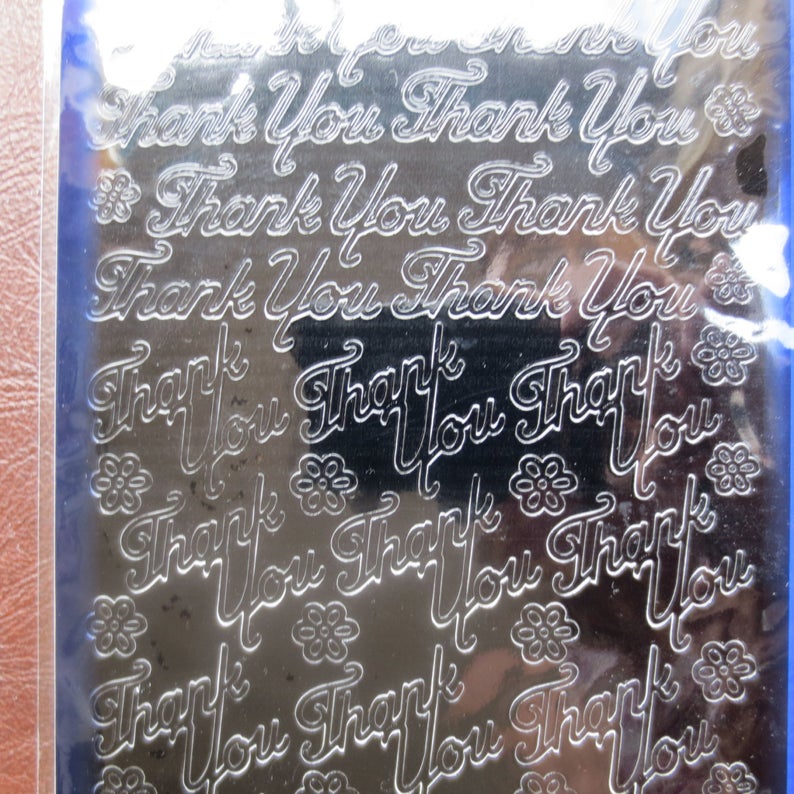 Thank You Thank You
Thank You Thank You
Thank You Thank You
Thank You Thank You
Thank You Thank You Thank You
Thank You Thank You Thank You
Thank You Thank You Thank You